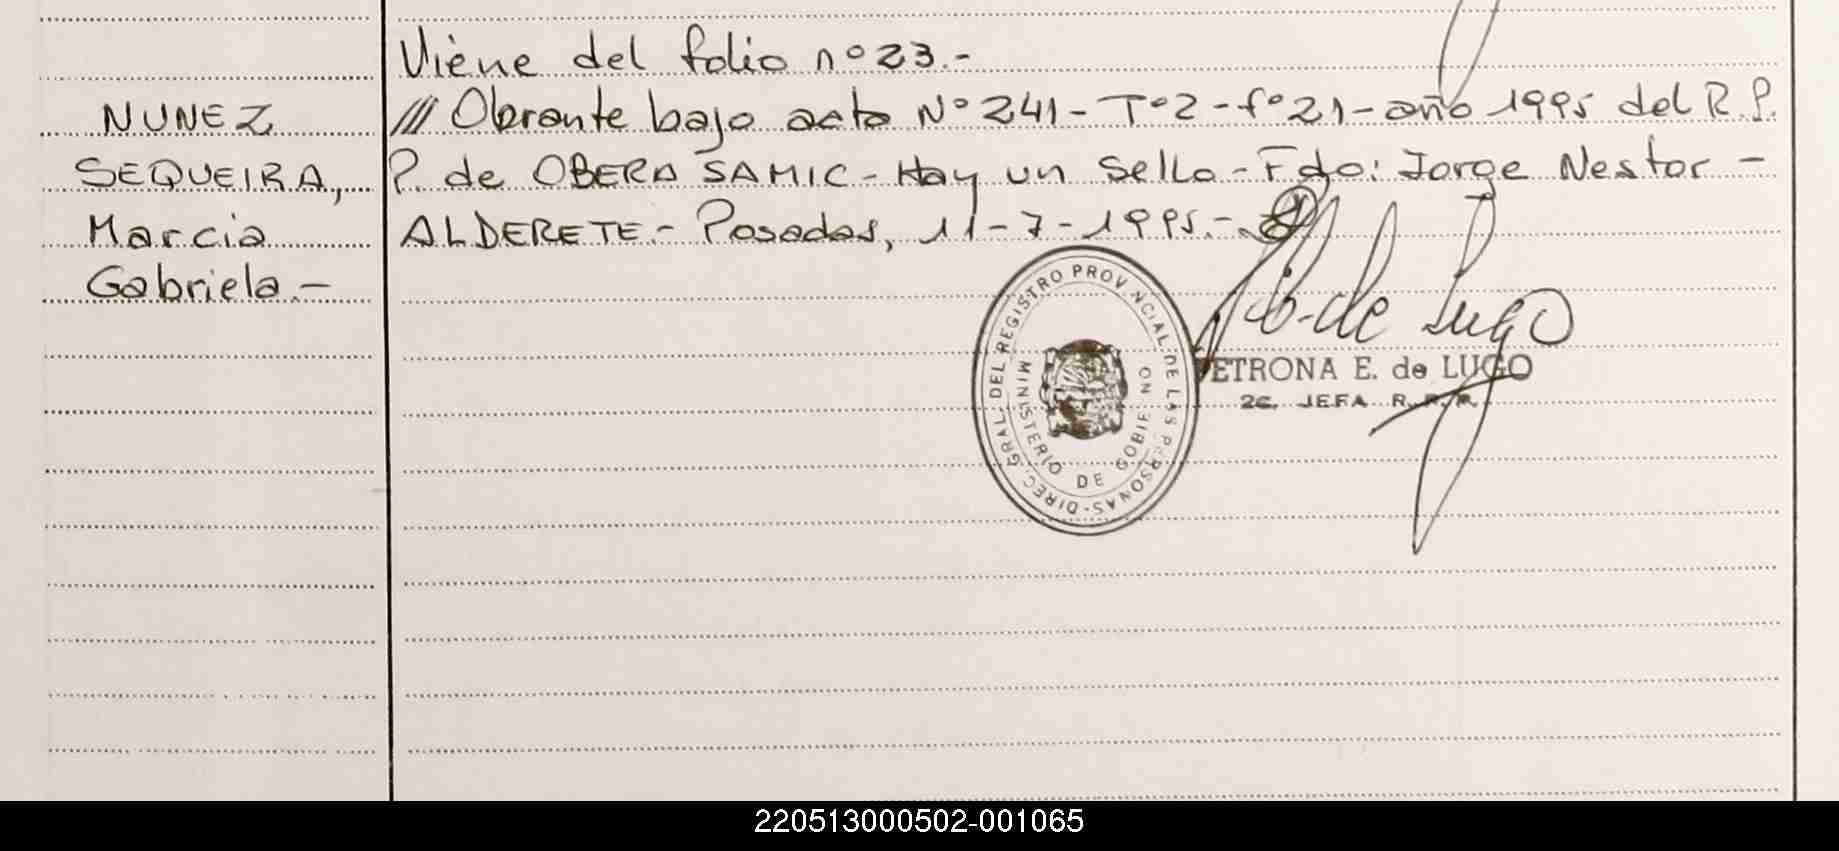 Viene del folio nº 23.-
NUNEZ
SEQUEIRA,
Marcia
Gabriela.-
/// Obrante bajo acta Nº 241 - Tº 2 - fº 21 - año 1995 del R.P.
P. de OBERA SAMIC - Hay un sello - Fdo: Jorge Nestor -
ALDERETE.- Posadas, 11-7-1995.-
DIREC. GRAL. DEL REGISTRO PROVINCIAL DE LAS PERSONAS-
MINISTERIO DE GOBIERNO
de Lugo
PETRONA E. de LUGO
2a. JEFA R.P.P.
220513000502-001065